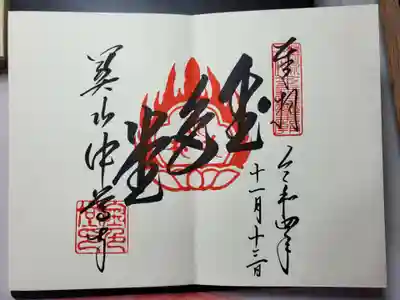 奉拝
令和四年
十一月十三日
金色堂
関山中尊寺